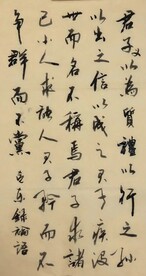 君子义以為質禮以行之孫
以出之信以成之君子疾没
世而名不稱焉君子求諸
己小人求諸人君子矜而不
争群而不黨 錄論語